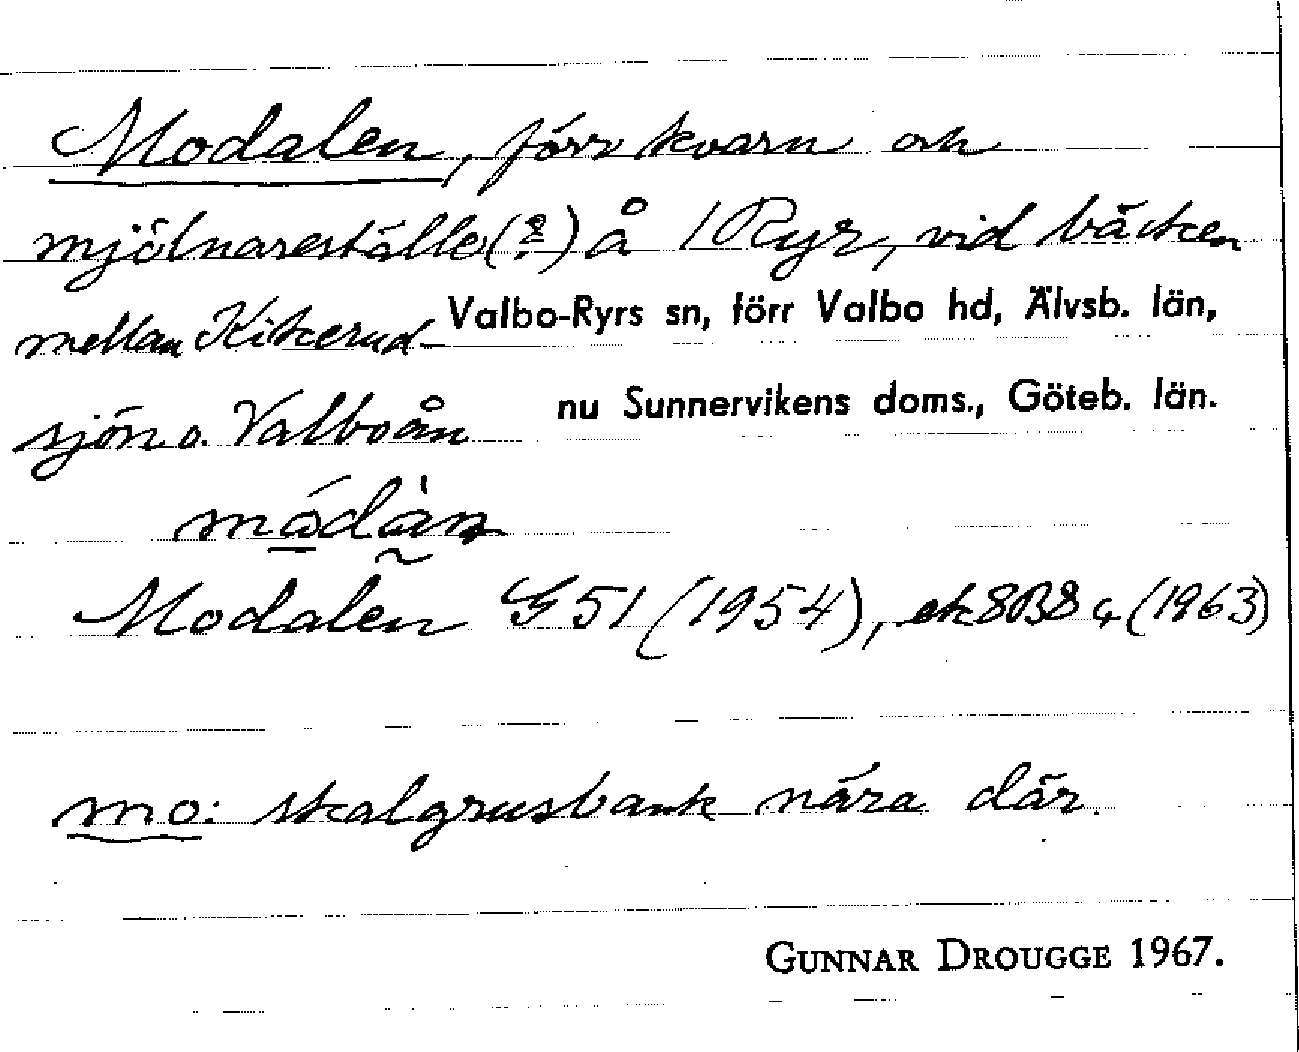 Modalen, förr kvarn och
mjölnareställe(?) å 1 Ryr, vid bäcken
mellan Kikerud- Valbo-Ryrs sn, förr Valbo hd, Älvsb. län,
sjön o. Valboån nu Sunnervikens doms., Göteb. län.
Modalen G 51 (1954), ek 8B8 (1963)
mo: skalgrusbank nära där.
GUNNAR DROUGGE 1967.